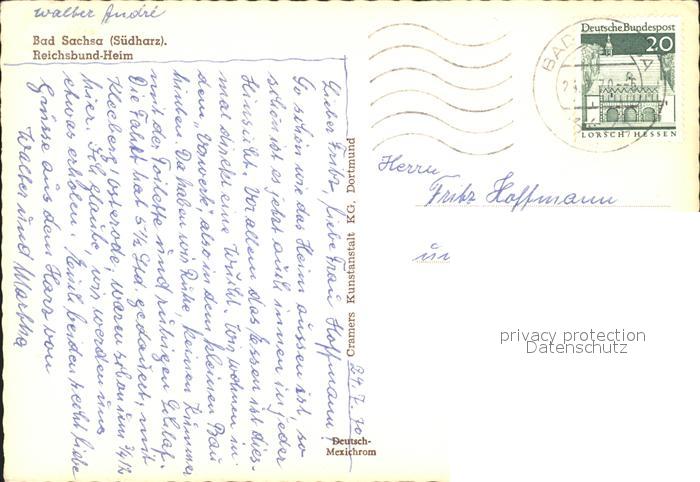 Walter André
Bad Sachsa (Südharz).
Reichsbund-Heim
24.7.70
Lieber Fritz, liebe Frau Hoffmann!
So schön wie das Heim aussen ist, so
schön ist es jetzt auch innen in jeder
Hinsicht. Vor allem das Essen ist dies-
mal direkt eine Wucht. Wir wohnen in
dem Vorwerk, also in dem kleinen Bau
hinten. Da haben wir Ruhe, keinen Kummer
mit der Toilette und ruhigen Schlaf.
Die Fahrt hat 5½ Std. gedauert, mit
Osterode, waren schon um ¾ 12
hier. Ich glaube, wir werden uns
etwas erholen. Euch beiden recht liebe
Grüsse aus dem Harz von
Walter und Martha
Cramers Kunstanstalt KG, Dortmund
Deutsch-
Mexichrom
Deutsche Bundespost
20
LORSCH/HESSEN
BAD
Herrn
Fritz Hoffmann
in
privacy protection
Datenschutz